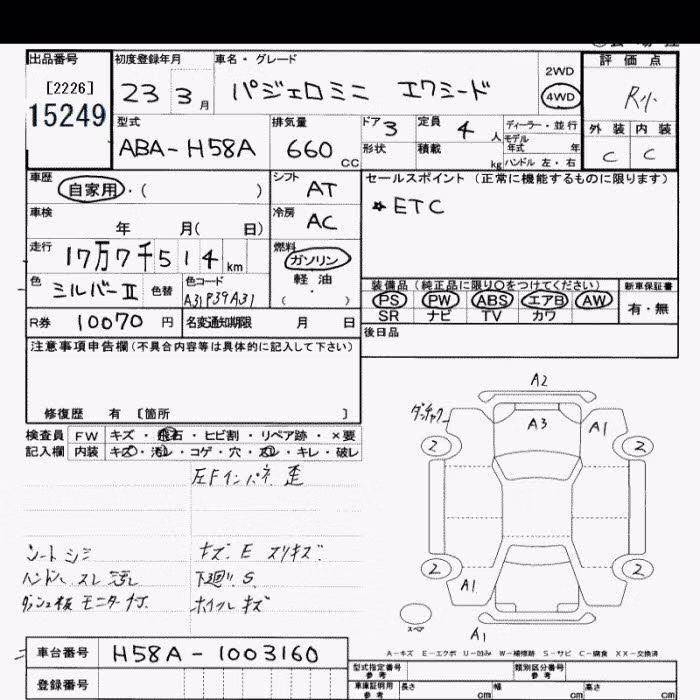 出品番号 初度登録年月 車名・グレード 評価点
[2226]
15249
23 3月 パジェロミニ エクシード 2WD 4WD R小
型式 排気量 ドア 定員 ディーラー・並行 外装 内装
ABA-H58A 660 CC 3 4 人 モデル年式 年 C C
形状 積載 kg ハンドル 左・右
車歴 自家用・( ) シフト AT セールスポイント(正常に機能するものに限ります)
車検 年 月( 日) 冷房 AC ★ETC
走行 17万7千514 km 燃料 ガソリン
色 シルバーII 色替 色コード A31P39A31 軽油 ( ・ )
装備品(純正品に限り○をつけてください) 新車保証書
PS PW ABS エアB AW 有・無
SR ナビ TV カワ
R券 10070 円 名変通知期限 月 日 後日品
注意事項申告欄(不具合内容等は具体的に記入して下さい)
修復歴 有 [箇所 ]
検査員 FW キズ・飛石・ヒビ割・リペア跡・×要
記入欄 内装 キズ・汚レ・コゲ・穴・スレ・キレ・破レ
左Fインパネ 歪
シートシミ キズ.E スリキズ
ハンドル スレ 汚レ 下廻リ S.
ダッシュ板 モニター付. ホイルキズ
A2
A3 A1
2 2
2 2
A1
スペア
A1
A-キズ E-エクボ U-凹み W-補修跡 S-サビ C-腐食 XX-交換済
車台番号 H58A-1003160
登録番号
型式指定番号 参考 類別区分番号 参考
車庫証明用 参考 長さ cm 幅 cm 高さ cm